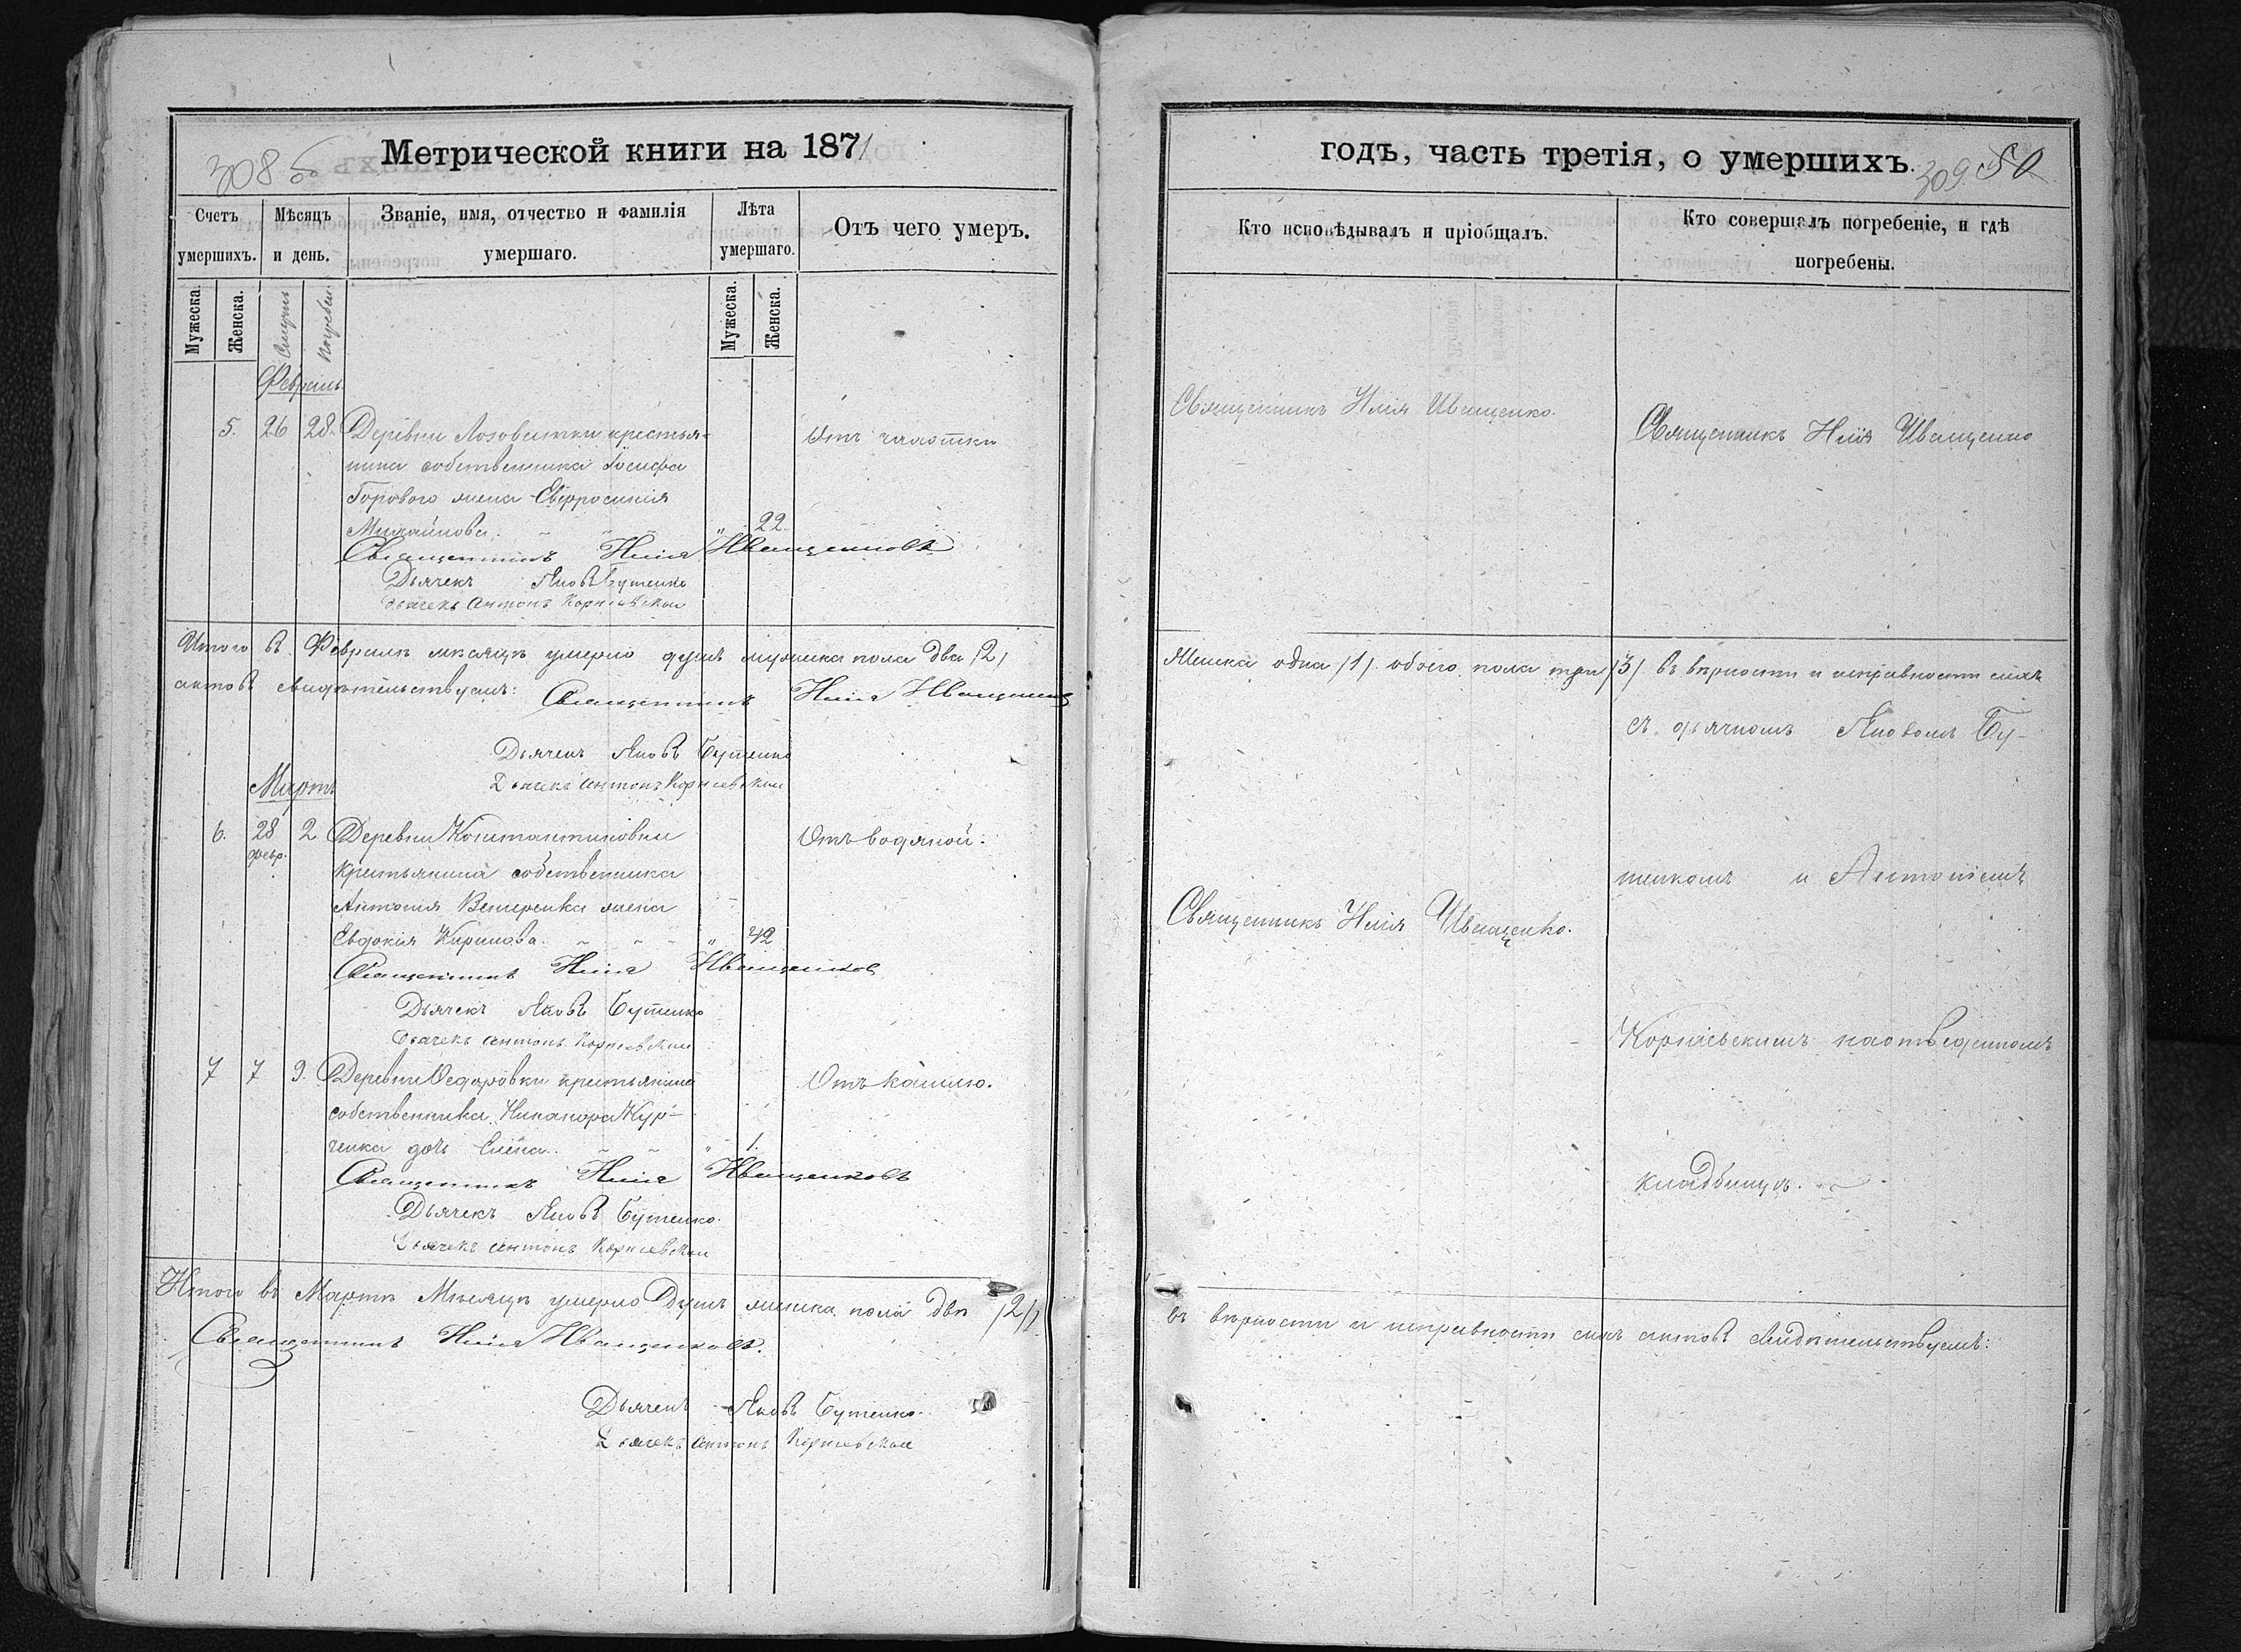 Метрической книги на 1871
308 об
Счетъ умершихъ.
Мѣсяцъ и день.
Званіе, имя, отчество и фамилія умершаго.
Лѣта умершаго.
Отъ чего умеръ.
Мужеска.
Женска.
Смерти
Погребен.
Мужеска.
Женска.
Февраль
5. 26 28. Деревни Лозоватки крестья-
нина собственника Іосифа
Горового жена Евфросинія
Михайлова. „ 22.
Отъ чахотки
Священникъ Илія Иващенковъ
Дьячекъ Яковъ Бутенко
Дьячекъ Антонъ Корніевскій
Итого въ Февралѣ мѣсяцѣ умерло душъ мужеска пола два /2/
актовъ свидѣтельствуемъ: Священникъ Илія Иващенковъ
Дьячекъ Яковъ Бутенко
Дьячекъ Антонъ Корніевскій
Мартъ
6. 28 февр. 2 Деревни Константиновки
крестьянина собственника
Антонія жена
Евдокія Кирилова. „ 42
Отъ водяной.
Священникъ Илія Иващенковъ
Дьячекъ Яковъ Бутенко
Дьячекъ Антонъ Корніевскій
7 7 9. Деревни Ѳедоровки крестьянина
собственника Никанора Кур-
ченка дочь Елена. „ 1.
Отъ кашлю.
Священникъ Илія Иващенковъ
Дьячекъ Яковъ Бутенко.
Дьячекъ Антонъ Корніевскій
Итого въ Мартѣ Мѣсяцѣ умерло Душъ женска пола двѣ /2/
Священникъ Илія Иващенковъ.
Дьячекъ Яковъ Бутенко.
Дьячекъ Антонъ Корніевскій
годъ, часть третія, о умершихъ.
309. 50
Кто исповѣдывалъ и пріобщалъ.
Кто совершалъ погребеніе, и гдѣ погребены.
Священникъ Илія Иващенко.
Священникъ Илія Иващенко
Женска одна /1/. обоего пола три /3/ въ вѣрности и исправности сихъ
съ дьячкомъ Яковомъ Бу-
тенкомъ и Антоніемъ
Священникъ Илія Иващенко.
Корніевскимъ на отведенномъ
кладбищѣ.
въ вѣрности и исправности сихъ актовъ свидѣтельствуемъ: